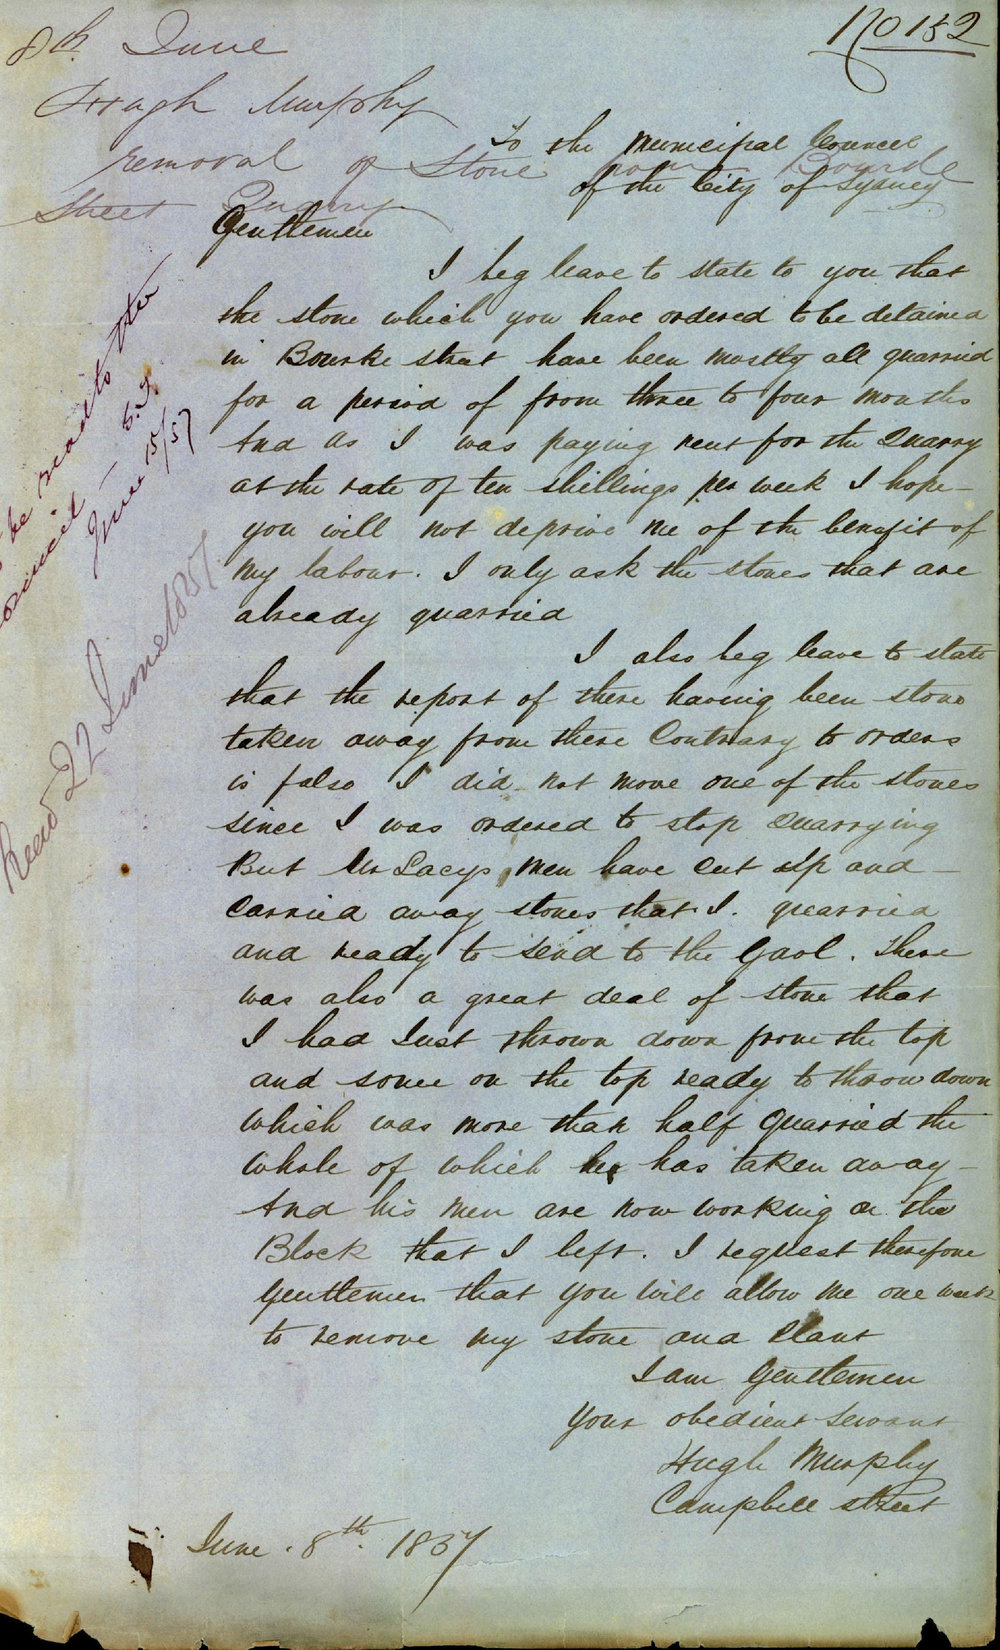 No 152
8th June
Hugh Murphy
removal of Stone from Bourke
Street Quarry
To the Municipal Council
of the City of Sydney
Gentlemen
I beg leave to state to you that
the stone which you have ordered to be detained
in Bourke street have been mostly all quarried
for a period of from three to four months
And as I was paying rent for the Quarry
at the rate of ten shillings per week I hope
you will not deprive me of the benefit of
my labour. I only ask the stones that are
already quarried
I also beg leave to state
that the report of there having been stone
taken away from there Contrary to orders
is false I did not move one of the stones
since I was ordered to stop Quarrying
But Mr Lacys men have cut up and
Carried away stones that I. quarried
and ready to send to the Gaol. There
was also a great deal of stone that
I had Just thrown down from the top
and some on the top ready to throw down
which was more than half Quarried the
whole of which he has taken away
And his men are now working on the
Block that I left. I request therefore
Gentlemen that you will allow me one week
to remove my stone and Plant
I am Gentlemen
Your obedient Servant
Hugh Murphy
Campbell street
June. 8th. 1857
be read to the
Council
June 15/57
Read 22 June 1857